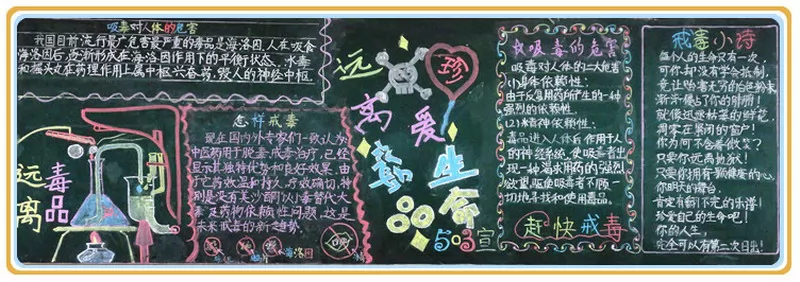 吸毒对人体的危害
我国目前流行最广危害最严重的毒品是海洛因,人在吸食
海洛因后,逐渐形成在海洛因作用下的平衡状态。冰毒
和摇头丸在药理作用上属中枢兴奋药,毁人的神经中枢
远离毒品
怎样戒毒
现在国内外专家们一致认为:
中医药用于脱毒,戒毒治疗,已经
显示其独特优势和良好效果。由
于它药效温和持久,疗效确切,特
别是没有美沙酮以小毒替代大
毒及药物依赖性问题,这是
未来戒毒的新趋势。
海洛因
远离毒品
珍爱生命
503宣
吸毒的危害
吸毒对人体的二大危害
(1)身体依赖性:
由于反复用药所产生的一种
强烈的依赖性
(2)精神依赖性:
毒品进入人体后作用于人
的神经系统,使吸毒者出
现一种渴求用药的强烈
欲望,驱使吸毒者不顾一
切地寻找和使用毒品。
赶快戒毒
戒毒小诗
每个人的生命只有一次,
可你却没有学会抵制,
竟让贻害无穷的白色粉末
渐渐侵占了你的肺腑!
就像过早枯萎的鲜花
凋零在紧闭的窗户!
你为何不含着微笑?
只要你远离地狱!
只要你拥有颗健康的心,
你明天的舞台,
肯定有耐不完的乐谱!
珍爱自己的生命吧!
你的人生,
完全可以有第二次日出!